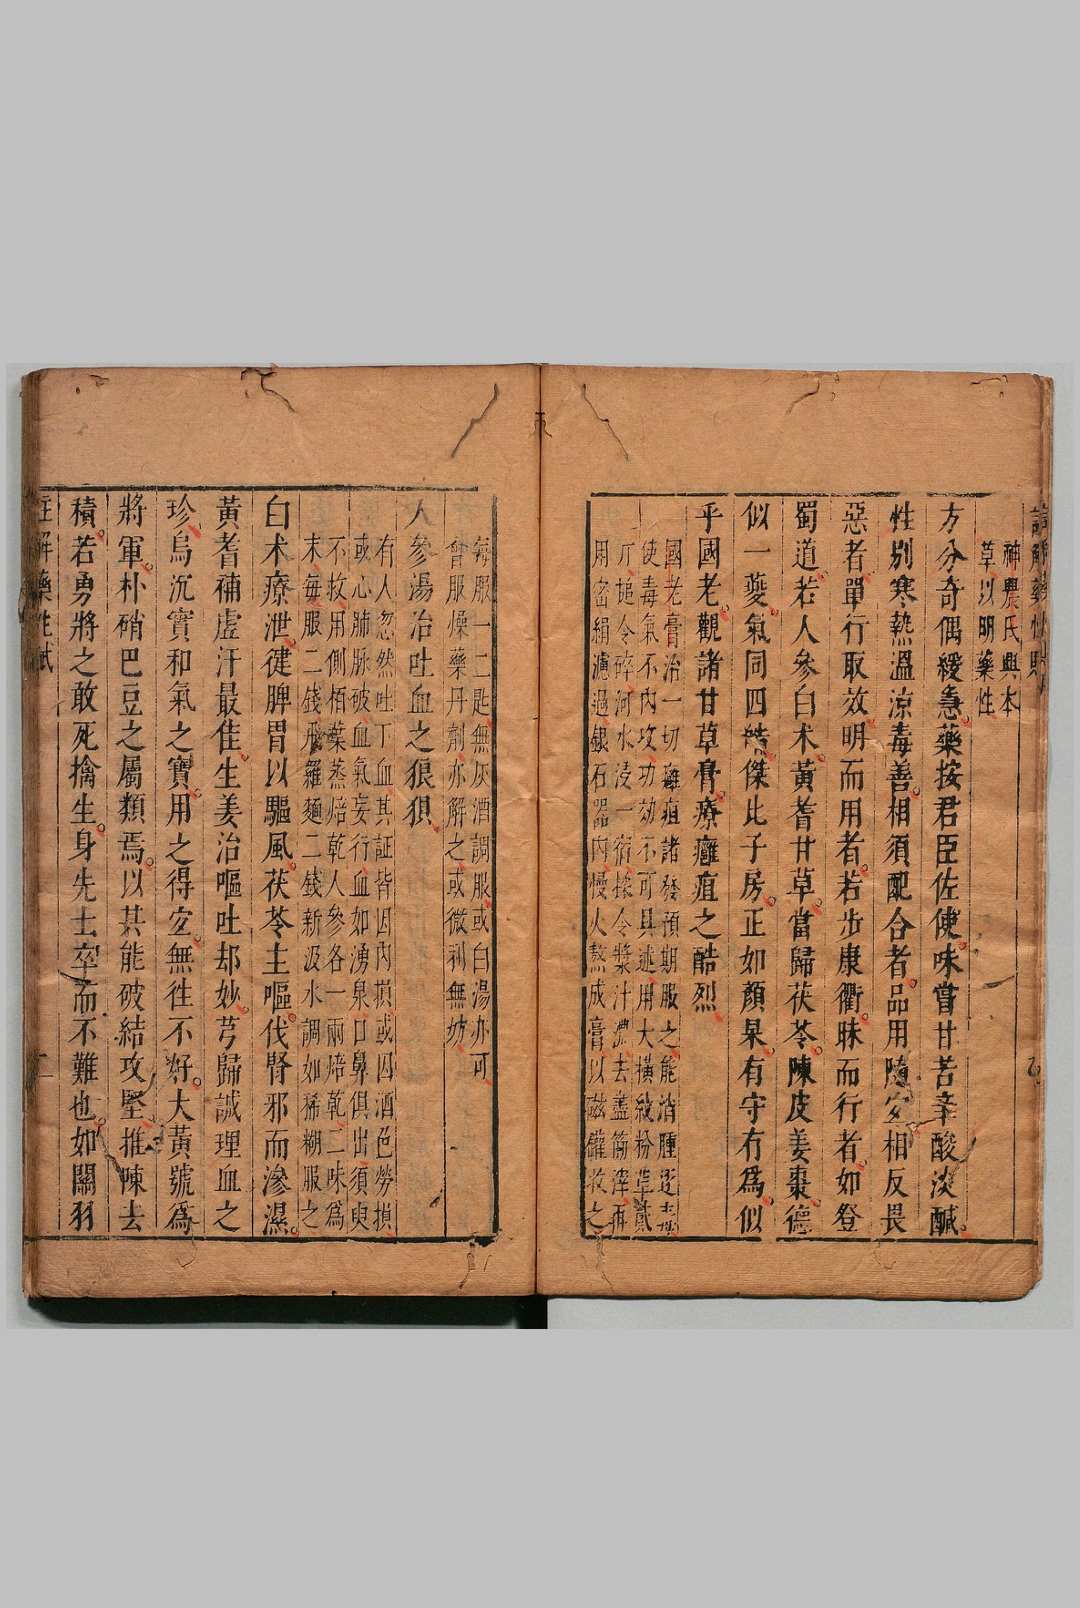 註解藥性賦
神農氏興本
草以明藥性
方分奇偶緩急藥按君臣佐使味嘗甘苦辛酸淡鹹
性別寒熱溫涼毒善相須配合者品用隨宜相反畏
惡者單行取效明而用者若步康衢昧而行者如登
蜀道若人參白朮黃耆甘草當歸茯苓陳皮姜棗德
似一夔氣同四皓傑比子房正如顏杲有守有為似
乎國老觀諸甘草膏療癰疽之酷烈
國老膏治一切癰疽諸發預期服之能消腫逐毒
使毒氣不內攻功効不可具述用大橫紋粉草貳
斤搥令碎河水浸一宿揉令漿汁濃去盡筋滓再
用密絹濾過銀石器內慢火熬成膏以磁罐收之
每服一二匙無灰酒調服或白湯亦可
曾服燥藥丹劑亦解之或微利無妨
人參湯治吐血之狼狽
有人忽然吐丁血其証皆因內損或因酒色勞損
或心肺脉破血氣妄行血如湧泉口鼻俱出須臾
不救用側栢葉蒸焙乾人參各一兩焙乾二味為
末每服二錢飛羅麵二錢新汲水調如稀糊服之
白朮療泄健脾胃以驅風茯苓主嘔伐腎邪而滲濕
黃耆補虛汗最佳生姜治嘔吐却妙芎歸誠理血之
珍烏沉實和氣之寶用之得宜無往不好大黃號為
將軍朴硝巴豆之屬類焉以其能破結攻堅推陳去
積若勇將之敢死擒生身先士卒而不難也如關羽
註解藥性賦
二